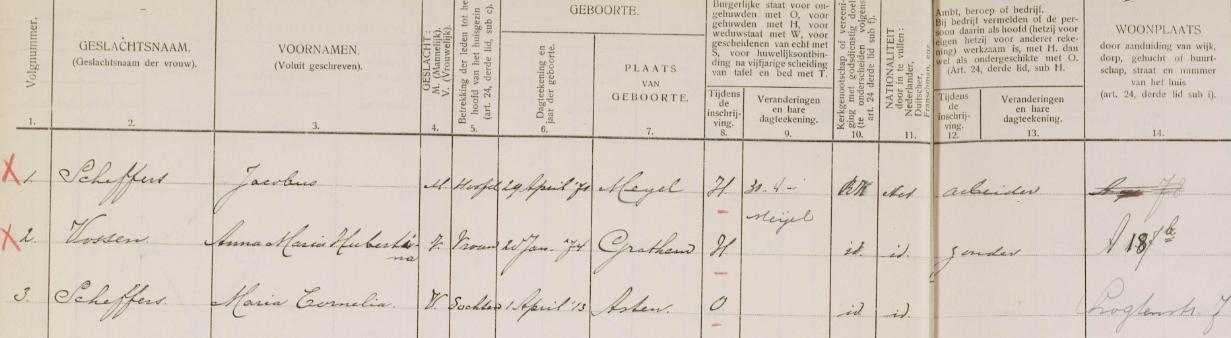 Volgnummer.
1.
GESLACHTSNAAM.
(Geslachtsnaam der vrouw).
2.
VOORNAMEN.
(Voluit geschreven).
3.
GESLACHT:
M. (Mannelijk).
V. (Vrouwelijk).
4.
Betrekking der leden tot het
hoofd van het huisgezin
(art. 24, derde lid, sub c).
5.
GEBOORTE.
Dagteekening en
jaar der geboorte.
6.
PLAATS
VAN
GEBOORTE.
7.
Burgerlijke staat voor on-
gehuwden met O, voor
gehuwden met H, voor
weduwstaat met W, voor
gescheidenen van echt met
S, voor huwelijksontbin-
ding na vijfjarige scheiding
van tafel en bed met T.
Tijdens
de
inschrij-
ving.
8.
Veranderingen
en hare
dagteekening.
9.
Kerkgenootschap of vereeni-
ging met godsdienstig doel
(te onderscheiden volgens
art. 24 derde lid sub f).
10.
NATIONALITEIT
door in te vullen:
Nederlander,
Duitscher,
Franschman, enz.
11.
Ambt, beroep of bedrijf.
Bij bedrijf vermelden of de per-
soon daarin als hoofd (hetzij voor
eigen hetzij voor anderer reke-
ning) werkzaam is, met H. dan
wel als ondergeschikte met O.
(Art. 24, derde lid, sub H.
Tijdens
de
inschrij-
ving.
12.
Veranderingen
en hare
dagteekening.
13.
WOONPLAATS
door aanduiding van wijk,
dorp, gehucht of buurt-
schap, straat en nummer
van het huis
(art. 24, derde lid sub i).
14.
X 1. Scheffers Jacobus M. Hoofd 29 April '71 Meyel H. 30-4- RK Ned arbeider
Meijel
X 2. Vossen. Anna Maria Huberti-
na V. Vrouw 20 Jan. '74 Grathem H. id. id. zonder A 187b
3. Scheffers. Maria Cornelia. V. Dochter 1 April '13 Asten. O id id.